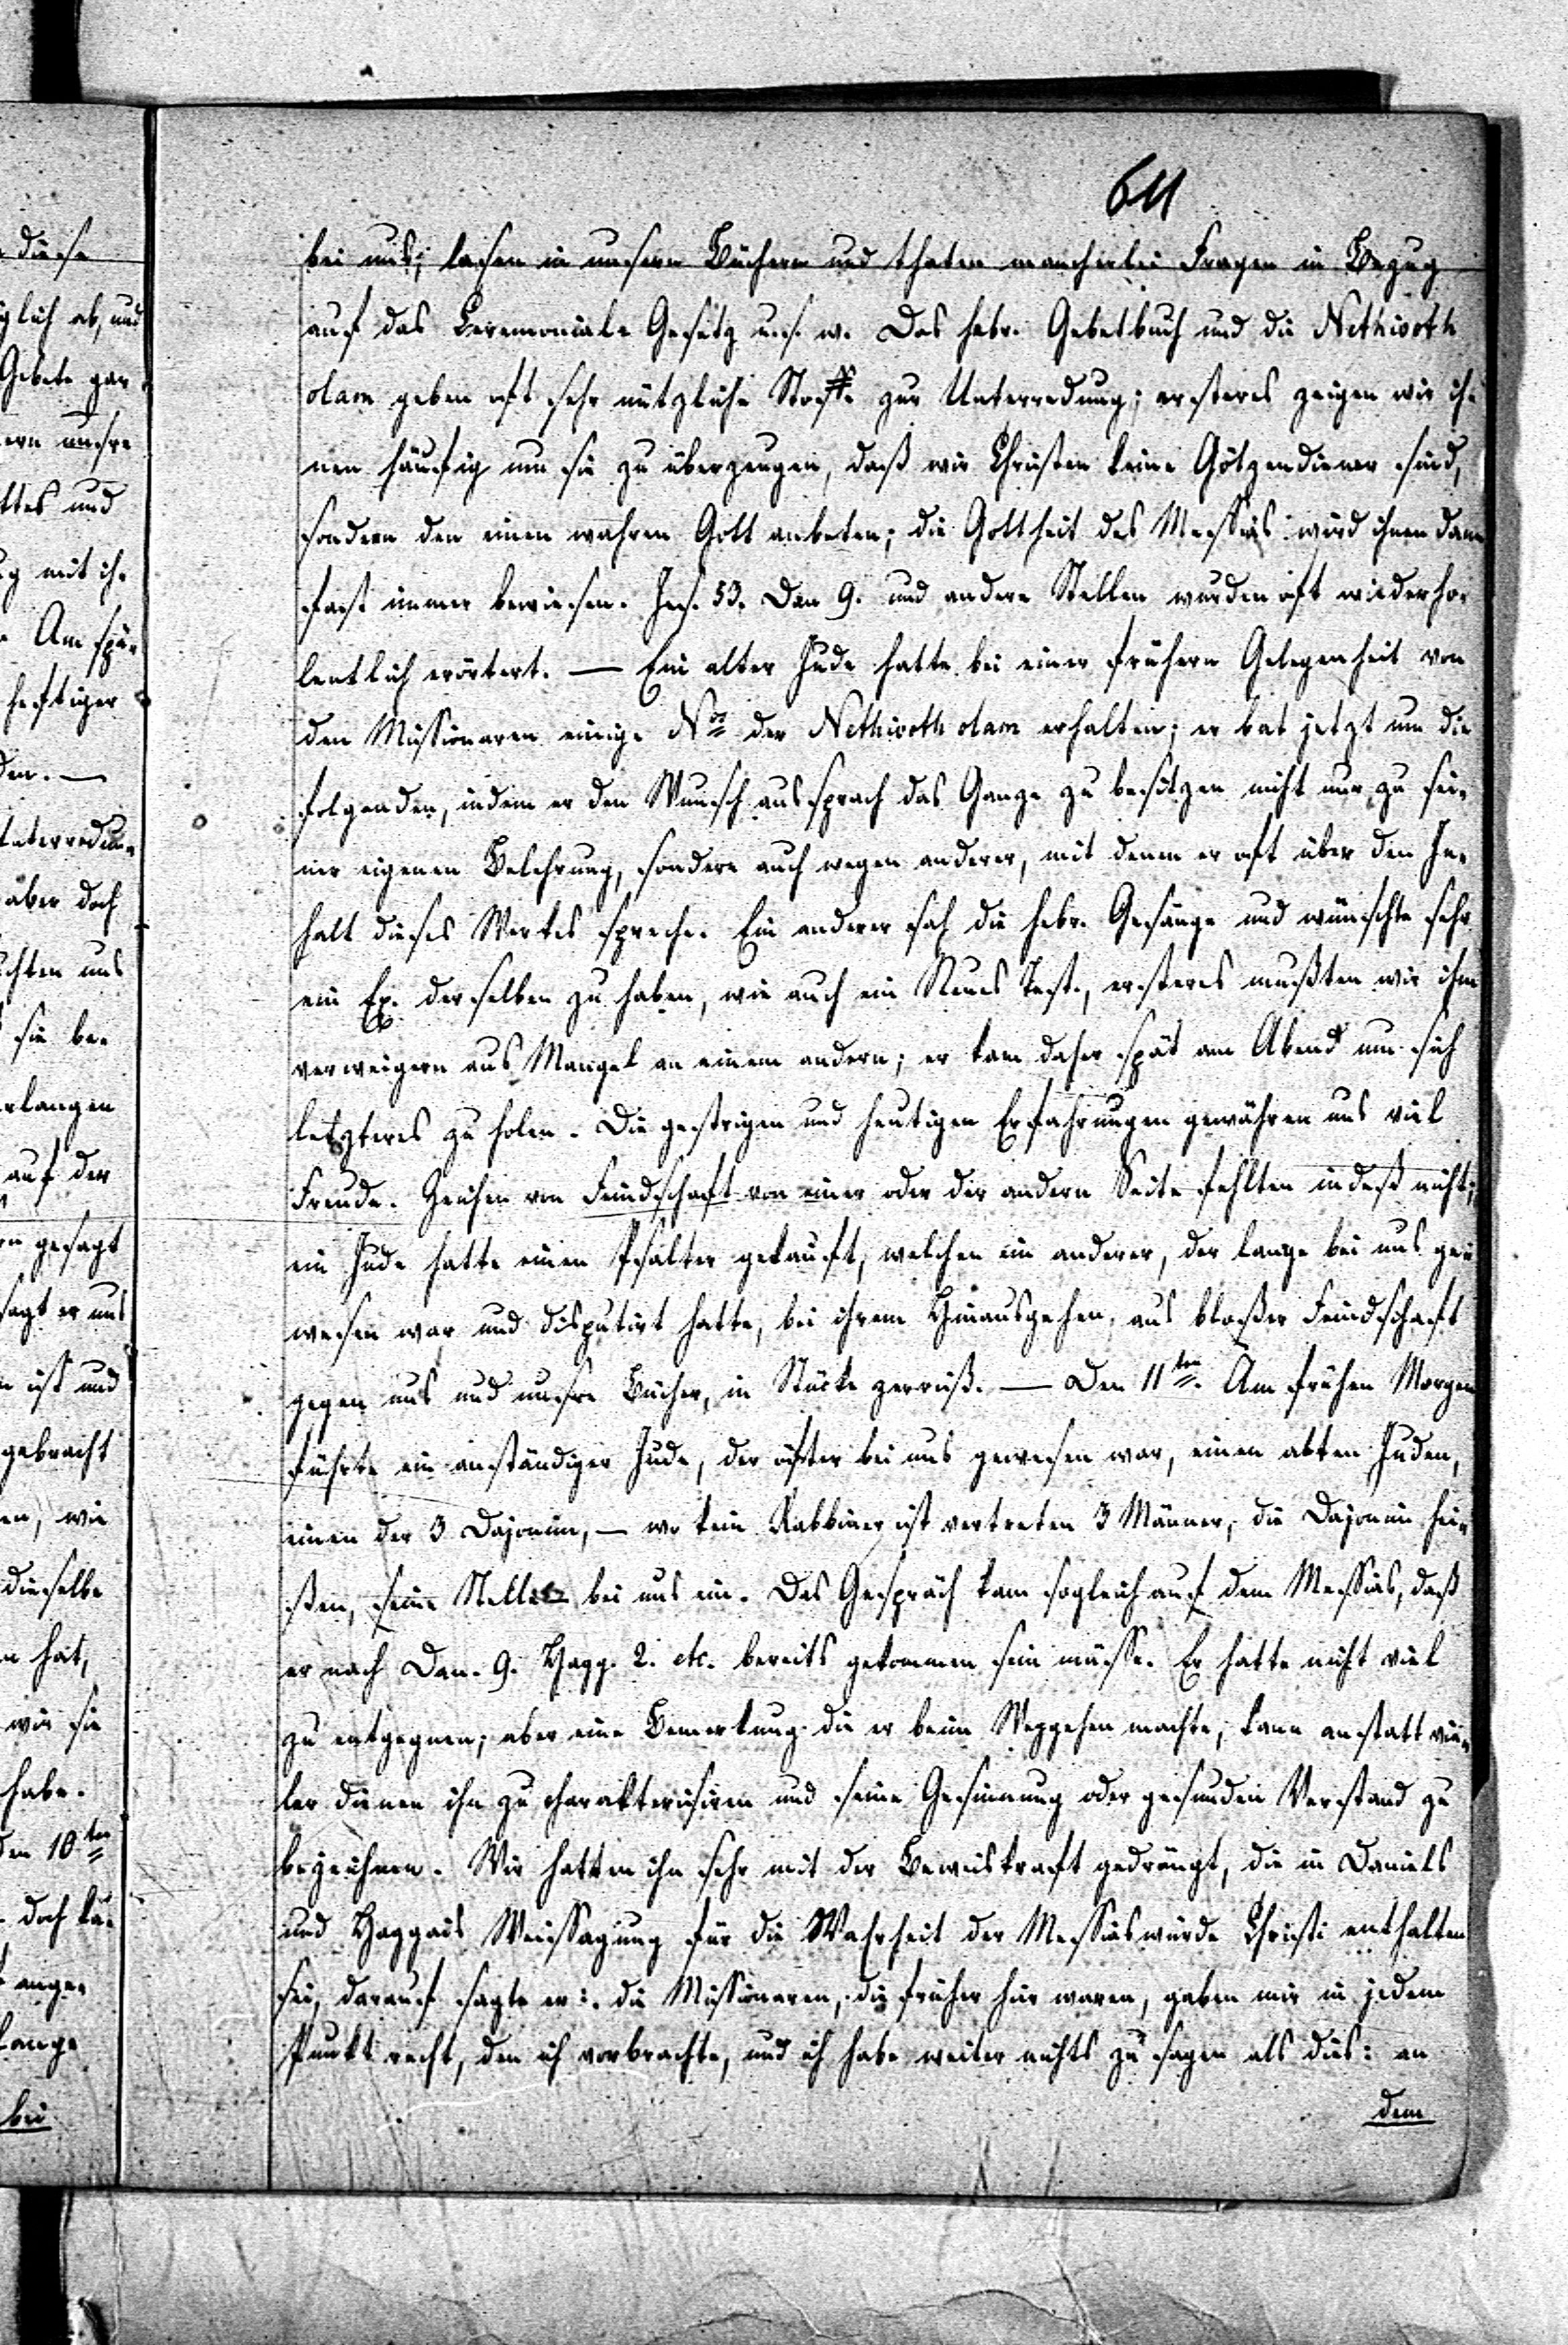 611
bei uns; lasen in unsern Büchern und thaten mancherlei Fragen in Bezug
auf das Ceremoniale Gesetz u.s.w. Das hebr. Gebetbuch und die Nethivoth
olam geben oft sehr nützliche Stoffe zur Unterredung; ersteres zeigen wir ih-
nen häufig um sie zu überzeugen, daß wir Christen keine Götzendiener sind,
sondern den einen wahren Gott anbeten; die Gottheit des Messias wird ihnen dann
fast immer bewiesen. Jes. 53. Dan 9. und andere Stellen wurden oft wiederho-
lentlich erörtert. — Ein alter Jude hatte bei einer frühern Gelegenheit von
den Missionaren einige Nos der Nethivoth olam erhalten; er bat jetzt um die
folgenden, indem er den Wunsch aussprach das Ganze zu besitzen nicht nur zu sei-
ner eigenen Belehrung, sondern auch wegen anderer, mit denen er oft über den In-
halt dieses Werkes spreche. Ein anderer sah die hebr. Gesänge und wünschte sehr
ein Ex. derselben zu haben, wie auch ein Neues Test., ersteres mußten wir ihm
verweigern aus Mangel an einem andern; er kam daher spät am Abend um sich
letzteres zu holen. Die gestrigen und heutigen Erfahrungen gewähren uns viel
Freude. Zeichen von Feindschaft von einer oder der andern Seite fehlten indeß nicht;
ein Jude hatte einen Psalter gekauft, welchen ein anderer, der lange bei uns ge-
wesen war und disputirt hatte, bei ihrem Hinausgehen, aus bloßer Feindschaft
gegen uns und unsre Bücher, in Stücke zerriß. — Den 11ten. Am frühen Morgen
führte ein anständiger Jude, der öfter bei uns gewesen war, einen alten Juden,
einen der 3 Dajonim, — wo kein Rabbiner ist vertreten 3 Männer, die Dajonim hei-
ßen, seine Stelle bei uns ein. Das Gespräch kam sogleich auf dem Messias, daß
er nach Dan. 9. Hagg. 2. etc. bereits gekommen sein müsse. Er hatte nicht viel
zu entgegnen; aber eine Bemerkung die er beim Weggehen machte, kann anstatt vie-
ler dienen ihn zu charakterisiren und seine Gesinnung oder gesunden Verstand zu
bezeichnen. Wir hatten ihn sehr mit der Beweiskraft gedrängt, die in Daniels
und Haggais Weissagung für die Wahrheit der Messiaswürde Christi enthalten
sei, darauf sagte er: die Missionaren, die früher hier waren, gaben mir in jedem
Punkt recht, den ich vorbrachte, und ich habe weiter nichts zu sagen als dies: an
dem